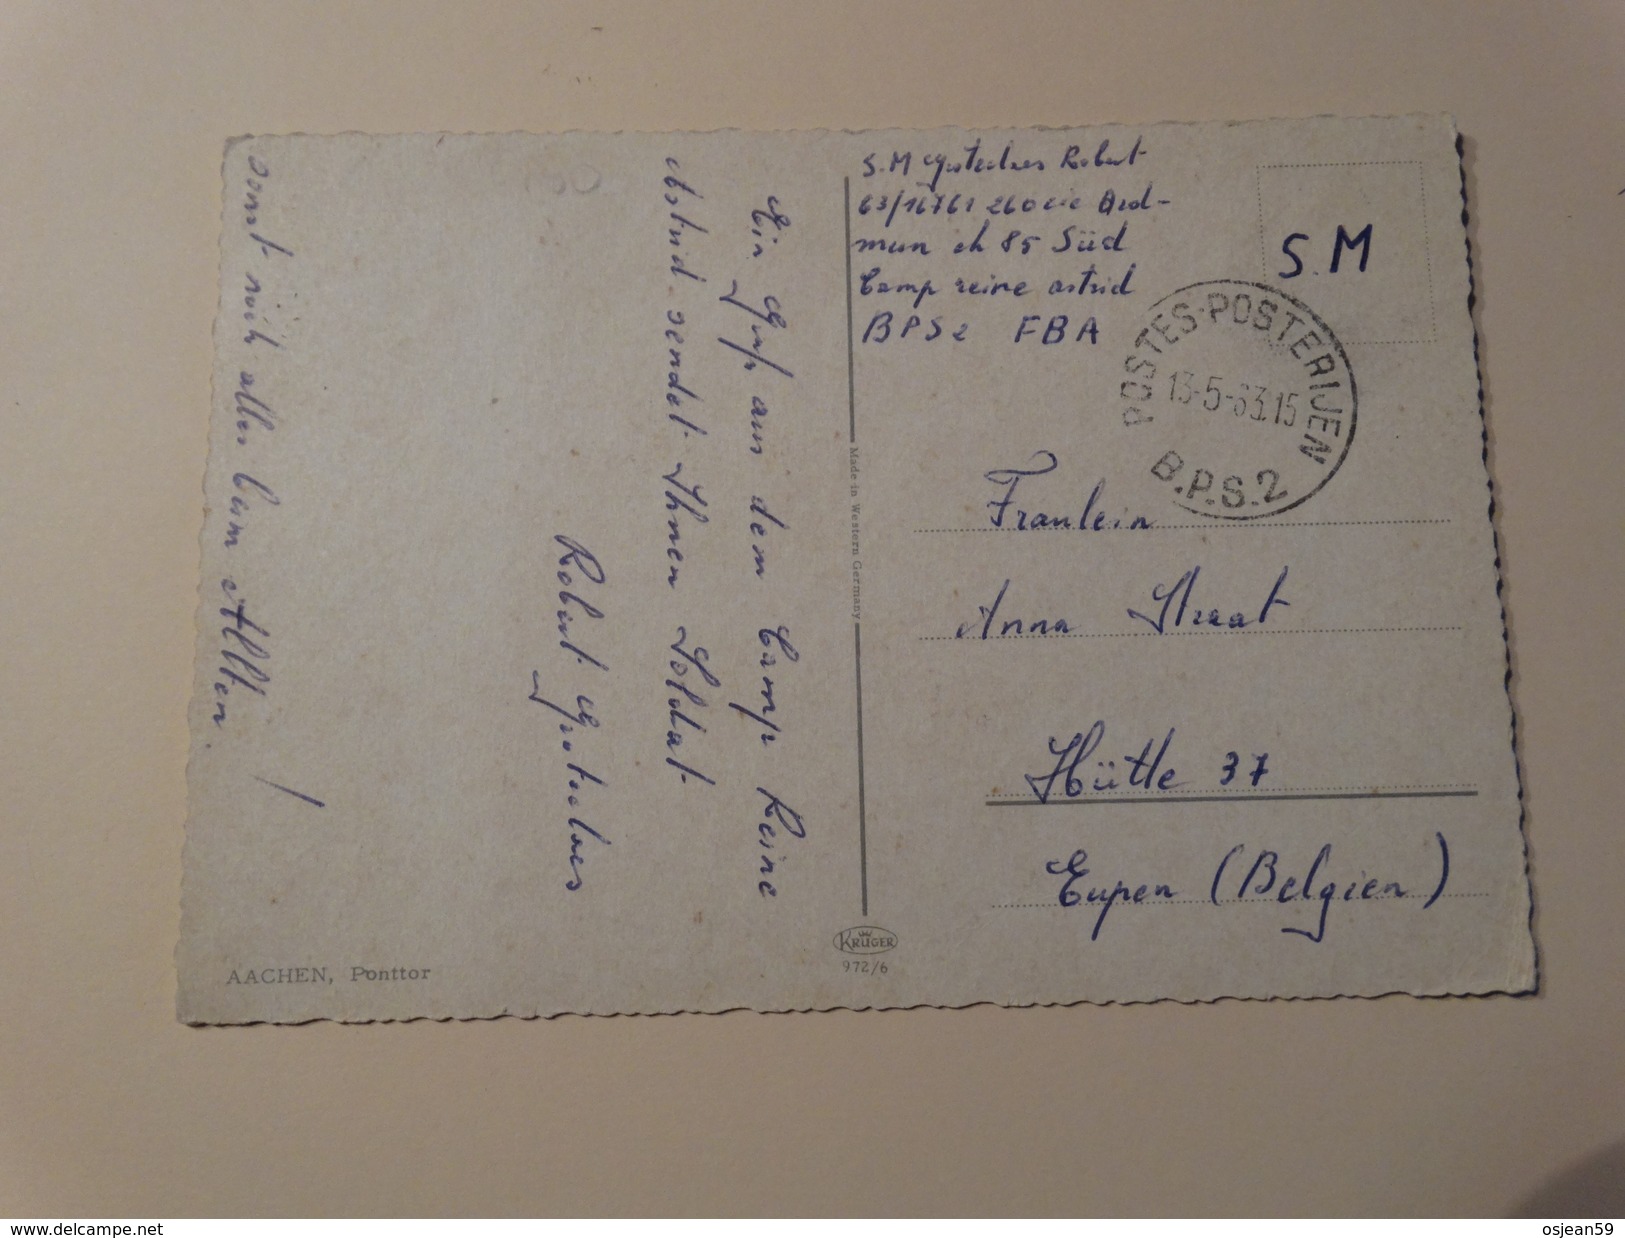 Ein Gruß aus dem Camp Reine
Astrid sendet Ihnen Soldat
Robert
sonst noch alles beim Allten.
AACHEN, Ponttor
Made in Western Germany
KRÜGER
972/6
S.M Robert
63/16761 260 cie Ord-
mun ch 85 Süd
Camp reine astrid
BPS2 FBA
S.M
POSTES-POSTERIJEN
13-5-63.15
B.P.S.2
Fraulein
Anna Straat
Hütte 37
Eupen (Belgien)
www.delcampe.net
osjean59